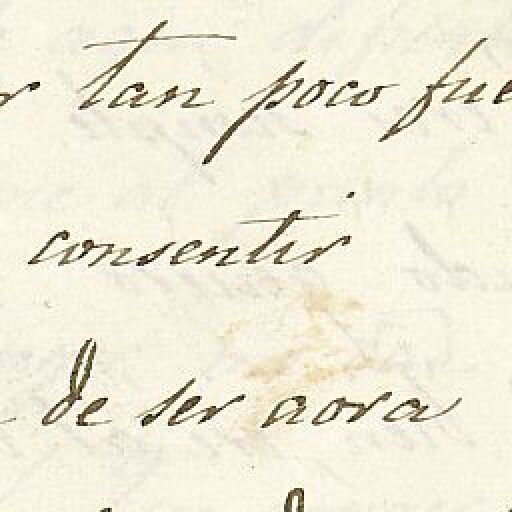 r tan poco fue
consentir
de ser aora